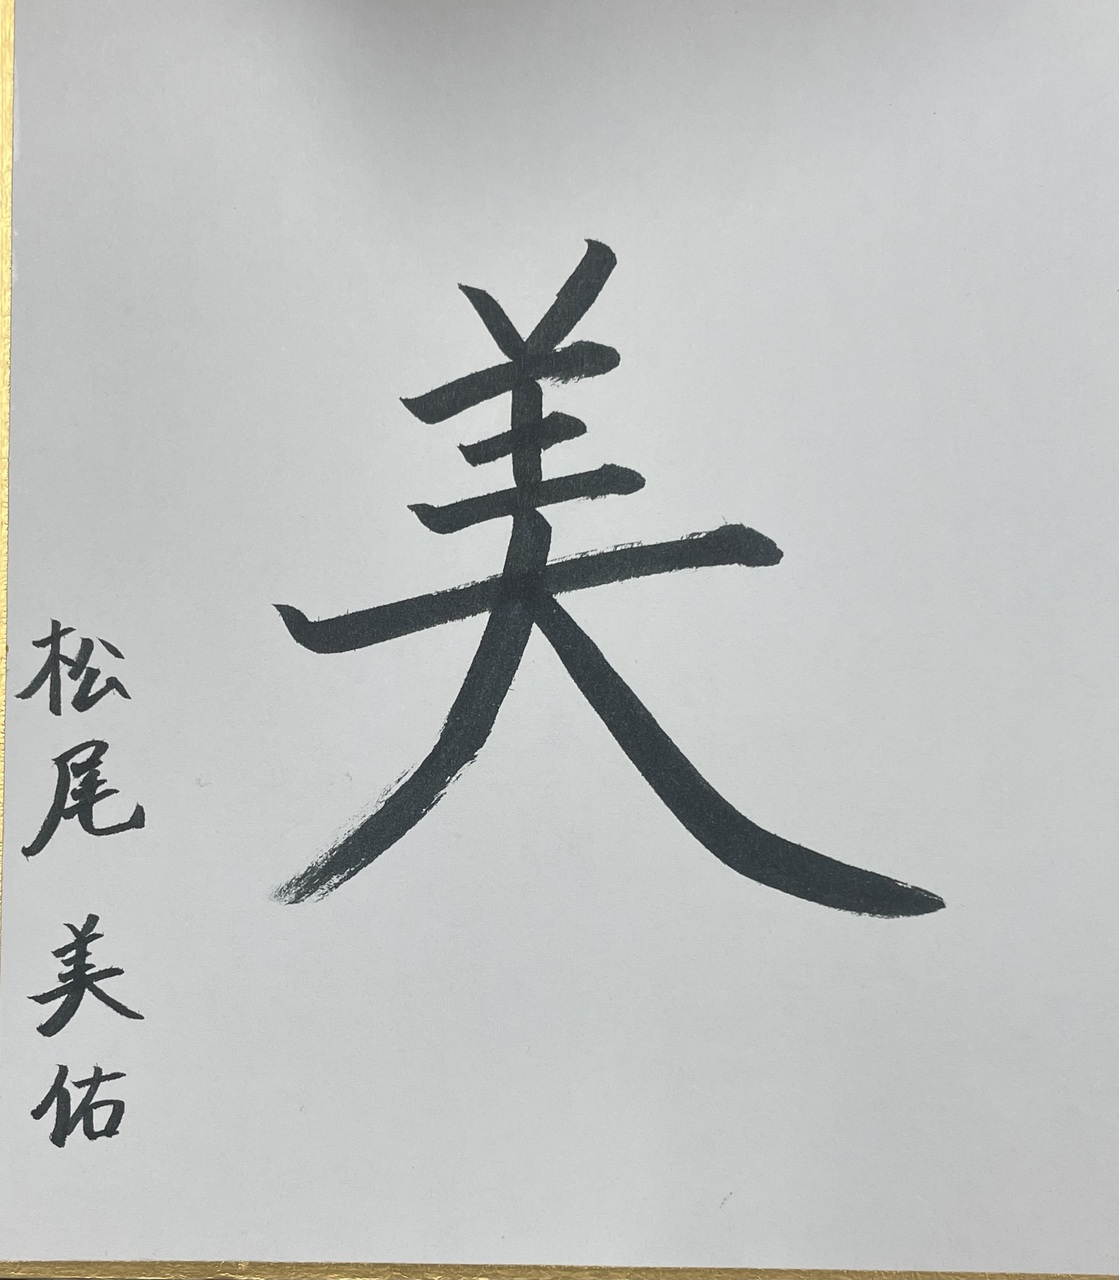 美
松尾 美佑